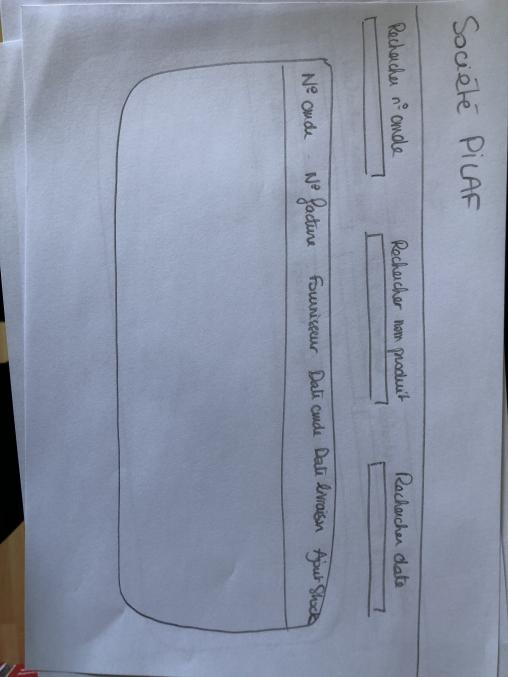 Société PiLAF
Rechercher n° cmde Rechercher nom produit Rechercher date
N° cmde - N° facture Fournisseur Date cmde Date livraison Ajout Stock